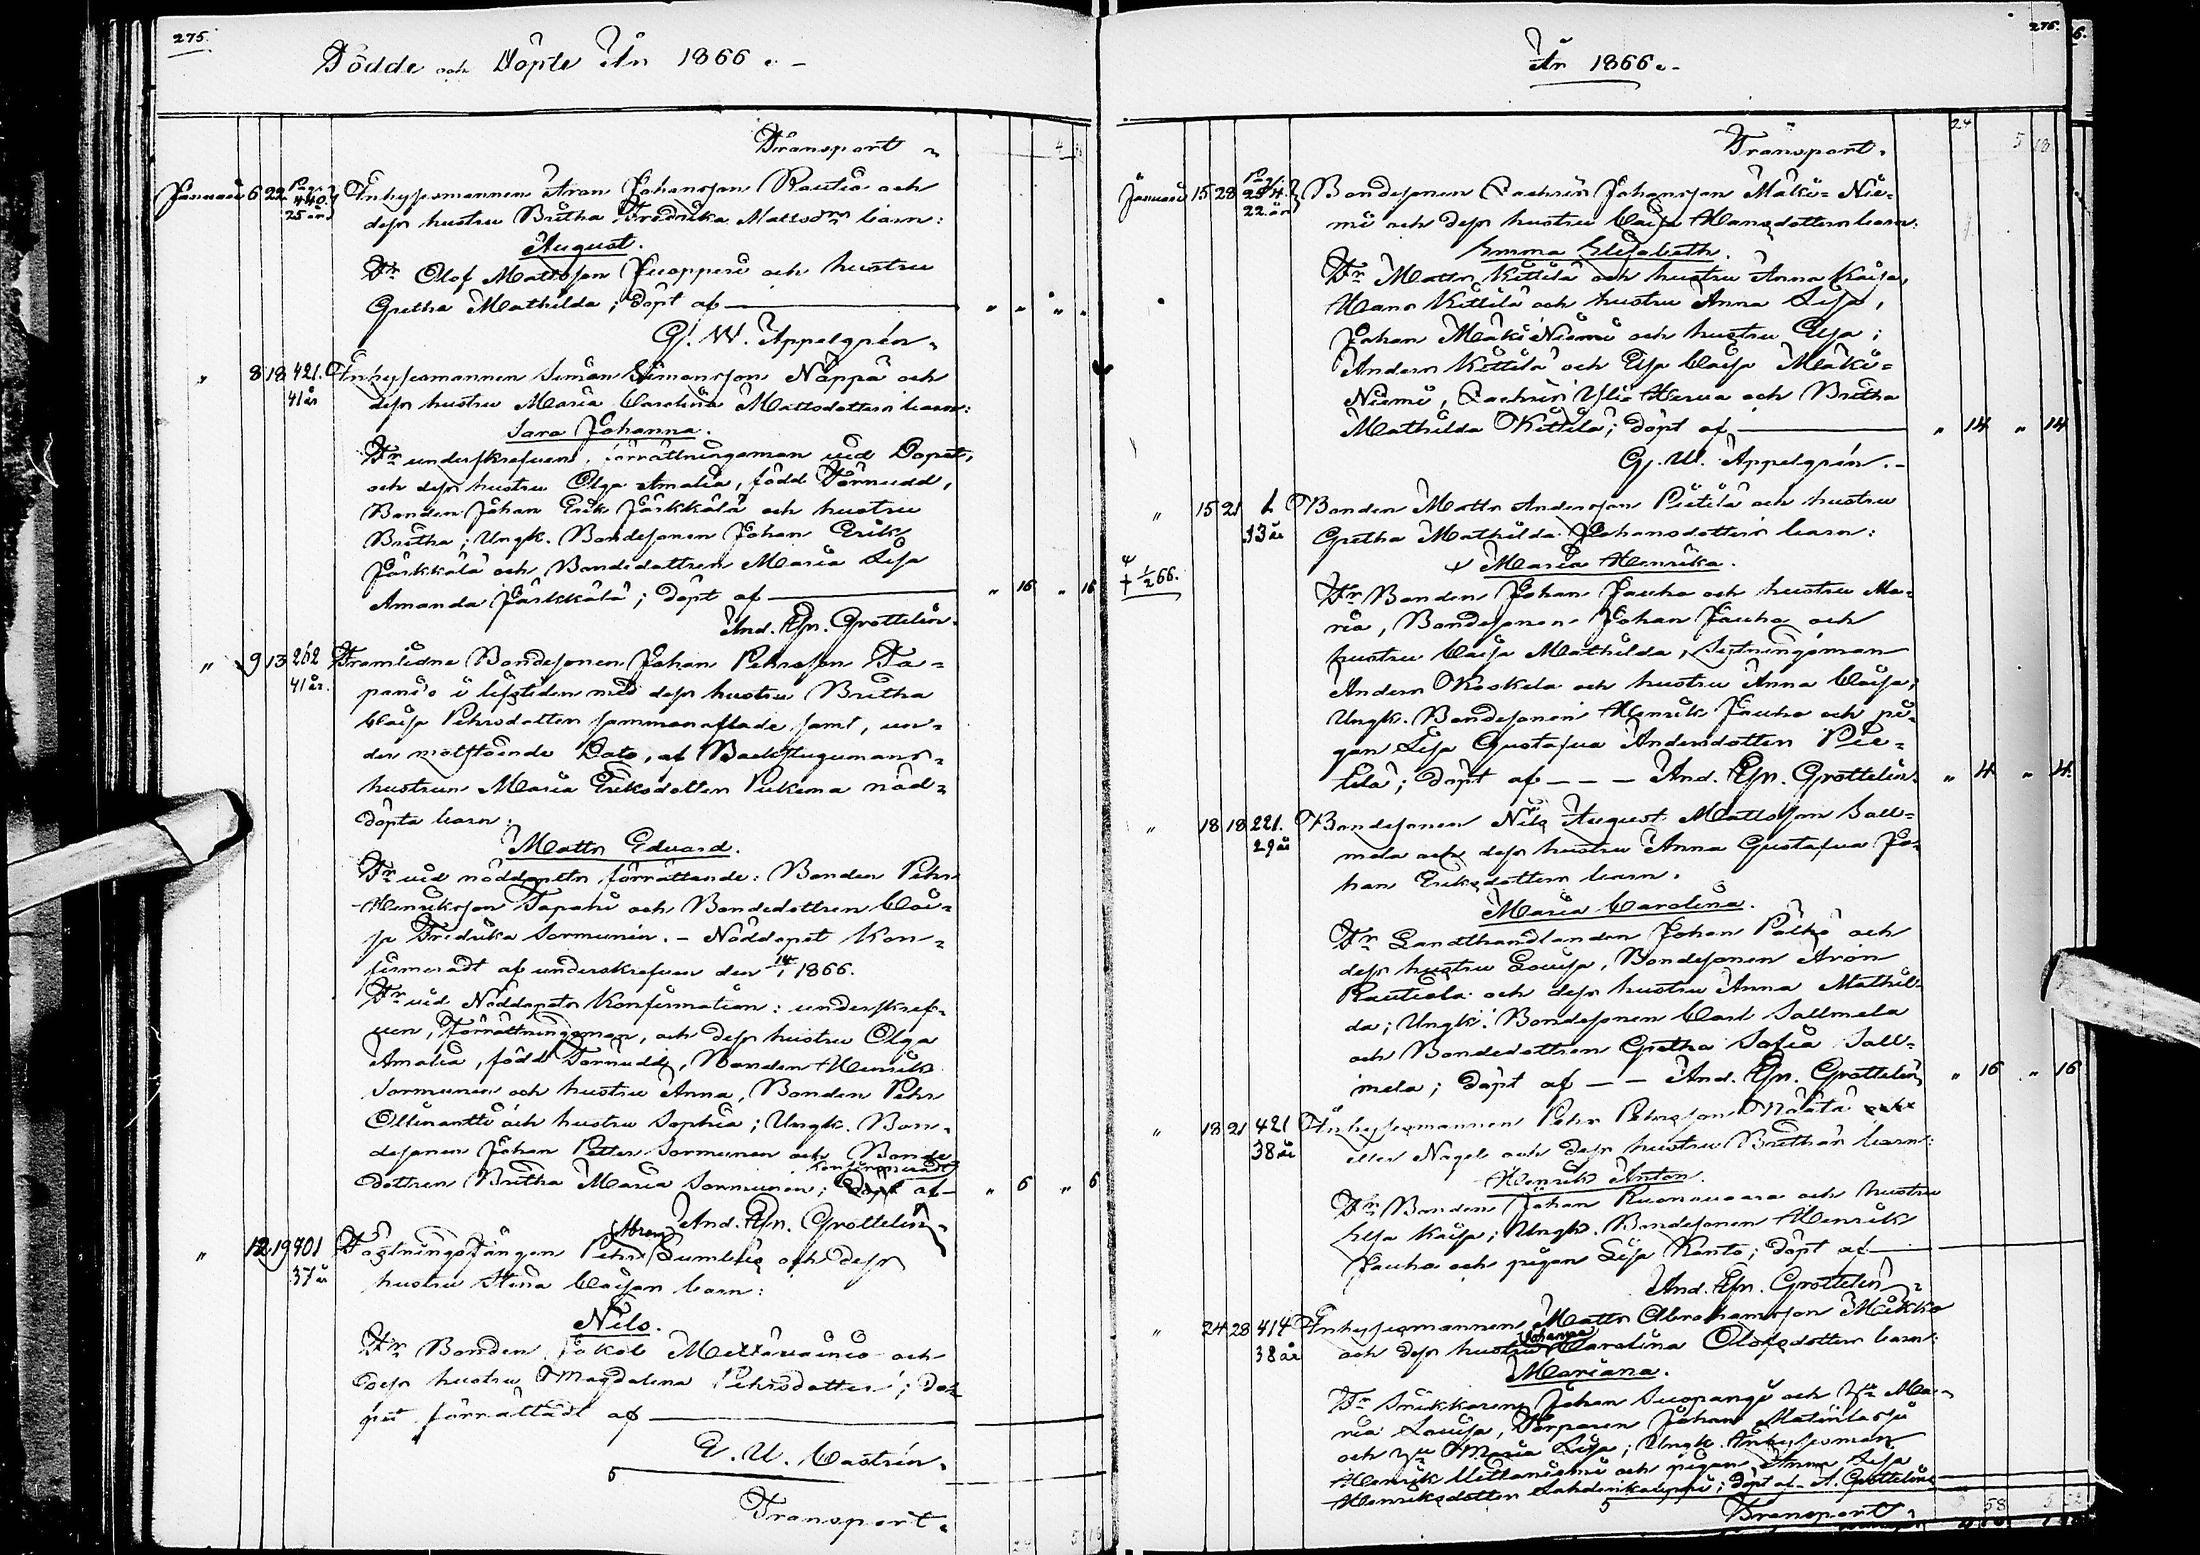 275.
Födde och Döpte År 1866.
Transport
Januarii 6 22 Pag. 440. 25 år Inhysesmannen Aron Johansson Rautio och
dess hustru Britha Fredrika Mattsdrs barn:
August.
Fr Olof Mattsson Juopperi och hustru
Gretha Mathilda; döpt af
Gj. W. Appelgrén.
" 8 18 421. 41 år Inhysesmannen Simon Simonsson Näppä och
dess hustru Maria Carolina Mattsdotters barn:
Sara Johanna.
Fr underskrefven, förrättningsman vid Dopet,
och dess hustru Olga Amalia, född Törnudd,
Bonden Johan Erik Järkkälä och hustru
Britha; Ungk. Bondesonen Johan Erik
Järkkälä och Bondedottren Maria Lisa
Amanda Järkkälä; döpt af " 16 " 16
And. Joh. Grottelin.
" 9 13 262 41 år. Framlidne Bondesonen Johan Pehrsson Ta-
pani's i lifstiden med dess hustru Britha
Caisa Pehrsdotter sammanaflade samt, un-
der motstående Dato, af Backstugumans-
hustrun Maria Eriksdotter Pukema nöd-
döpta barn:
Matts Edvard.
Fr vid nöddopets förrättande: Bonden Pehr
Henriksson Tapani och Bondedottren Cai-
sa Fredrika Sormunin. - Nöddopet Kon-
firmeradt af underskrefven den 14/1 1866.
Fr vid Nöddopets Konfirmation: underskref-
ven, Förrättningsman, och dess hustru Olga
Amalia, född Törnudd, Bonden Henrik
Sormunen och hustru Anna, Bonden Pehr
Ollinantti och hustru Sophia; Ungk. Bon-
desonen Johan Petter Sormunen och Bonde-
dottren Britha Maria Sormunen; konfirmeradt af " 6 " 6
And. Joh. Grottelin.
" 12 19 401 37 år Fästningsfången Pehr Abram Sumbliq och dess
hustru Stina Caisas barn:
Nils.
Fr Bonden Jakob Mettävainio och
dess hustru Magdalena Pehrsdotter; do-
pet förrättadt af
E. U. Castrén.
5
Transport.
276.
År 1866.
Transport. 24 5 18
Januarii 15 28 Pag. 254. 22 år Bondesonen Zachris Johansson Mäki-Nie-
mi och dess hustru Caisa Hansdotters barn:
Emma Elisabeth.
Fr Matts Kittilä och hustru Anna Kaisa,
Hans Kittilä och hustru Anna Lisa,
Johan Mäki Niemi och hustru Elsa;
Anders Kittilä och Elsa Caisa Mäki-
Niemi, Zachris Yli Herva och Britha
Mathilda Kittilä; döpt af " 14 " 14
Gj. W. Appelgrén.
" 15 21 1 33 år Bonden Matts Andersson Pietilä och hustru
Gretha Mathilda Johansdotters barn:
Maria Henrika.
† 1/2 66.
Fr Bonden Johan Jauho och hustru Ma-
ria, Bondesonen Johan Jauho och
hustru Caisa Mathilda, Sextningsman
Anders Koskela och hustru Anna Caisa;
Ungk. Bondesonen Henrik Jauho och pi-
gan Lisa Gustafva Andersdotter Pie-
tilä; döpt af - - - And. Joh. Grottelin. " 4 " 4
" 18 18 221. 29 år Bondesonen Nils August Mattsson Sall-
mela och dess hustru Anna Gustafva Jo-
han Eriksdotters barn.
Maria Carolina.
Fr Landthandlanden Johan Pälkö och
dess hustru Lovisa, Bondesonen Aron
Rautiola och dess hustru Anna Mathil-
da; Ungk. Bondesonen Carl Sallmela
och Bondedottren Gretha Sofia Sall-
mela; döpt af - - And. Joh. Grottelin " 16 " 16
" 18 21 421 38 år Inhysesmannen Pehr Pehrsson Määtä
eller Nagel och dess hustru Brithas barn:
Henrik Anton.
Fr Bonden Johan Ruonavaara och hustru
Elsa Kaisa; Ungk. Bondesonen Henrik
Jauho och pigan Lisa Kanto; döpt af
And. Joh. Grottelin
" 24 28 414 38 år Inhysesmannen Matts Abrahamsson Mikko
och dess hustru Johanna Carolina Olofsdotters barn:
Mariana.
Fr Snickaren Johan Suopangi och Hu Ma-
ria Lovisa, Torparen Johan Matinlassi
och Hu Maria Lisa; Ungk. Inhysesman
Henrik Uittaniemi och pigan Anna Lisa
Henriksdotter Lahdenkauppi; döpt af A. Grottelin
5
Transport. 58